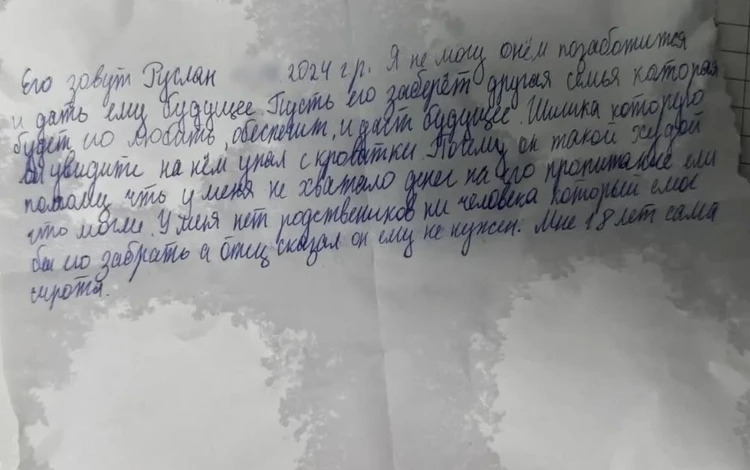 Его зовут Руслан 2024 г р. Я не могу онём позаботится
и дать ему будущее. Пусть его заберёт другая семья каторая
будет его любить, обеспечит, и даст будущее. Шишка которую
вы увидите на нём упал с кроватки. Почему он такой худой
потому что у меня не хватало денег на его пропитание ели
что могли. У меня нет родствеников ни человека который смог
бы его забрать а отец сказал он ему не нужен. Мне 18 лет сама
сирота.